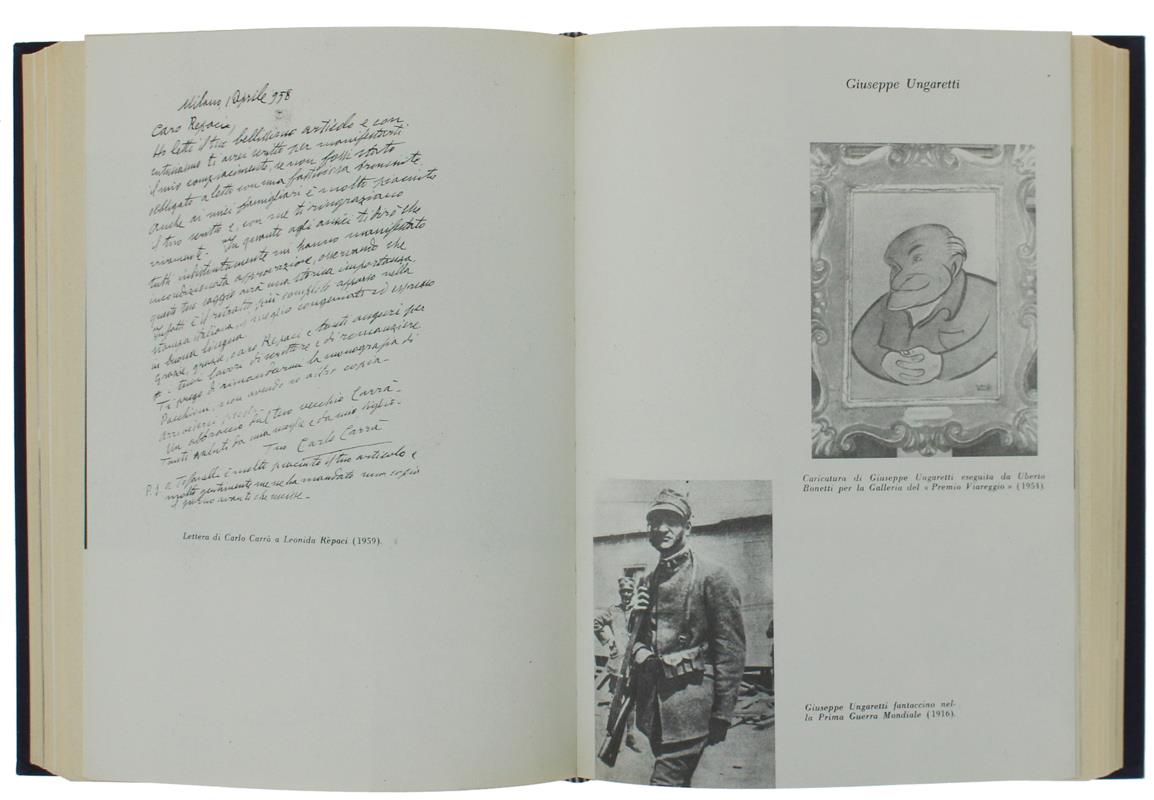 Milano 1 Aprile 958
Caro Repaci,
Ho letto il tuo bellissimo articolo e con
entusiasmo ti avrei scritto per manifestarti
il mio compiacimento, se non fossi stato
obbligato a letto con una fastidiosa bronchite.
Anche ai miei famigliari è molto piaciuto
il tuo scritto e, con me ti ringraziano
vivamente. In quanto agli amici ti dirò che
tutti indistintamente mi hanno manifestato
incondizionata approvazione, osservando che
questo tuo saggio avrà una storica importanza.
Infatti è il ritratto più completo apparso nella
stampa italiana, il meglio congegnato ed espresso
in buona lingua.
Grazie, grazie, caro Repaci e tanti auguri per
i tuoi lavori di scrittore e di romanziere
Ti prego di rimandarmi la monografia di
Pacchioni, non avendo io altra copia.
arrivederci presto.
Un abbraccio dal tuo vecchio Carrà.
Tanti saluti da mia moglie e da mio figlio.
Tuo Carlo Carrà
P.S. a è molto piaciuto il tuo articolo e
molto gentilmente me ne ha mandato una copia
il giorno avanti che uscisse.
Lettera di Carlo Carrà a Leonida Rèpaci (1959).
Giuseppe Ungaretti
Caricatura di Giuseppe Ungaretti eseguita da Uberto
Bonetti per la Galleria del « Premio Viareggio » (1954).
Giuseppe Ungaretti fantaccino nel-
la Prima Guerra Mondiale (1916).